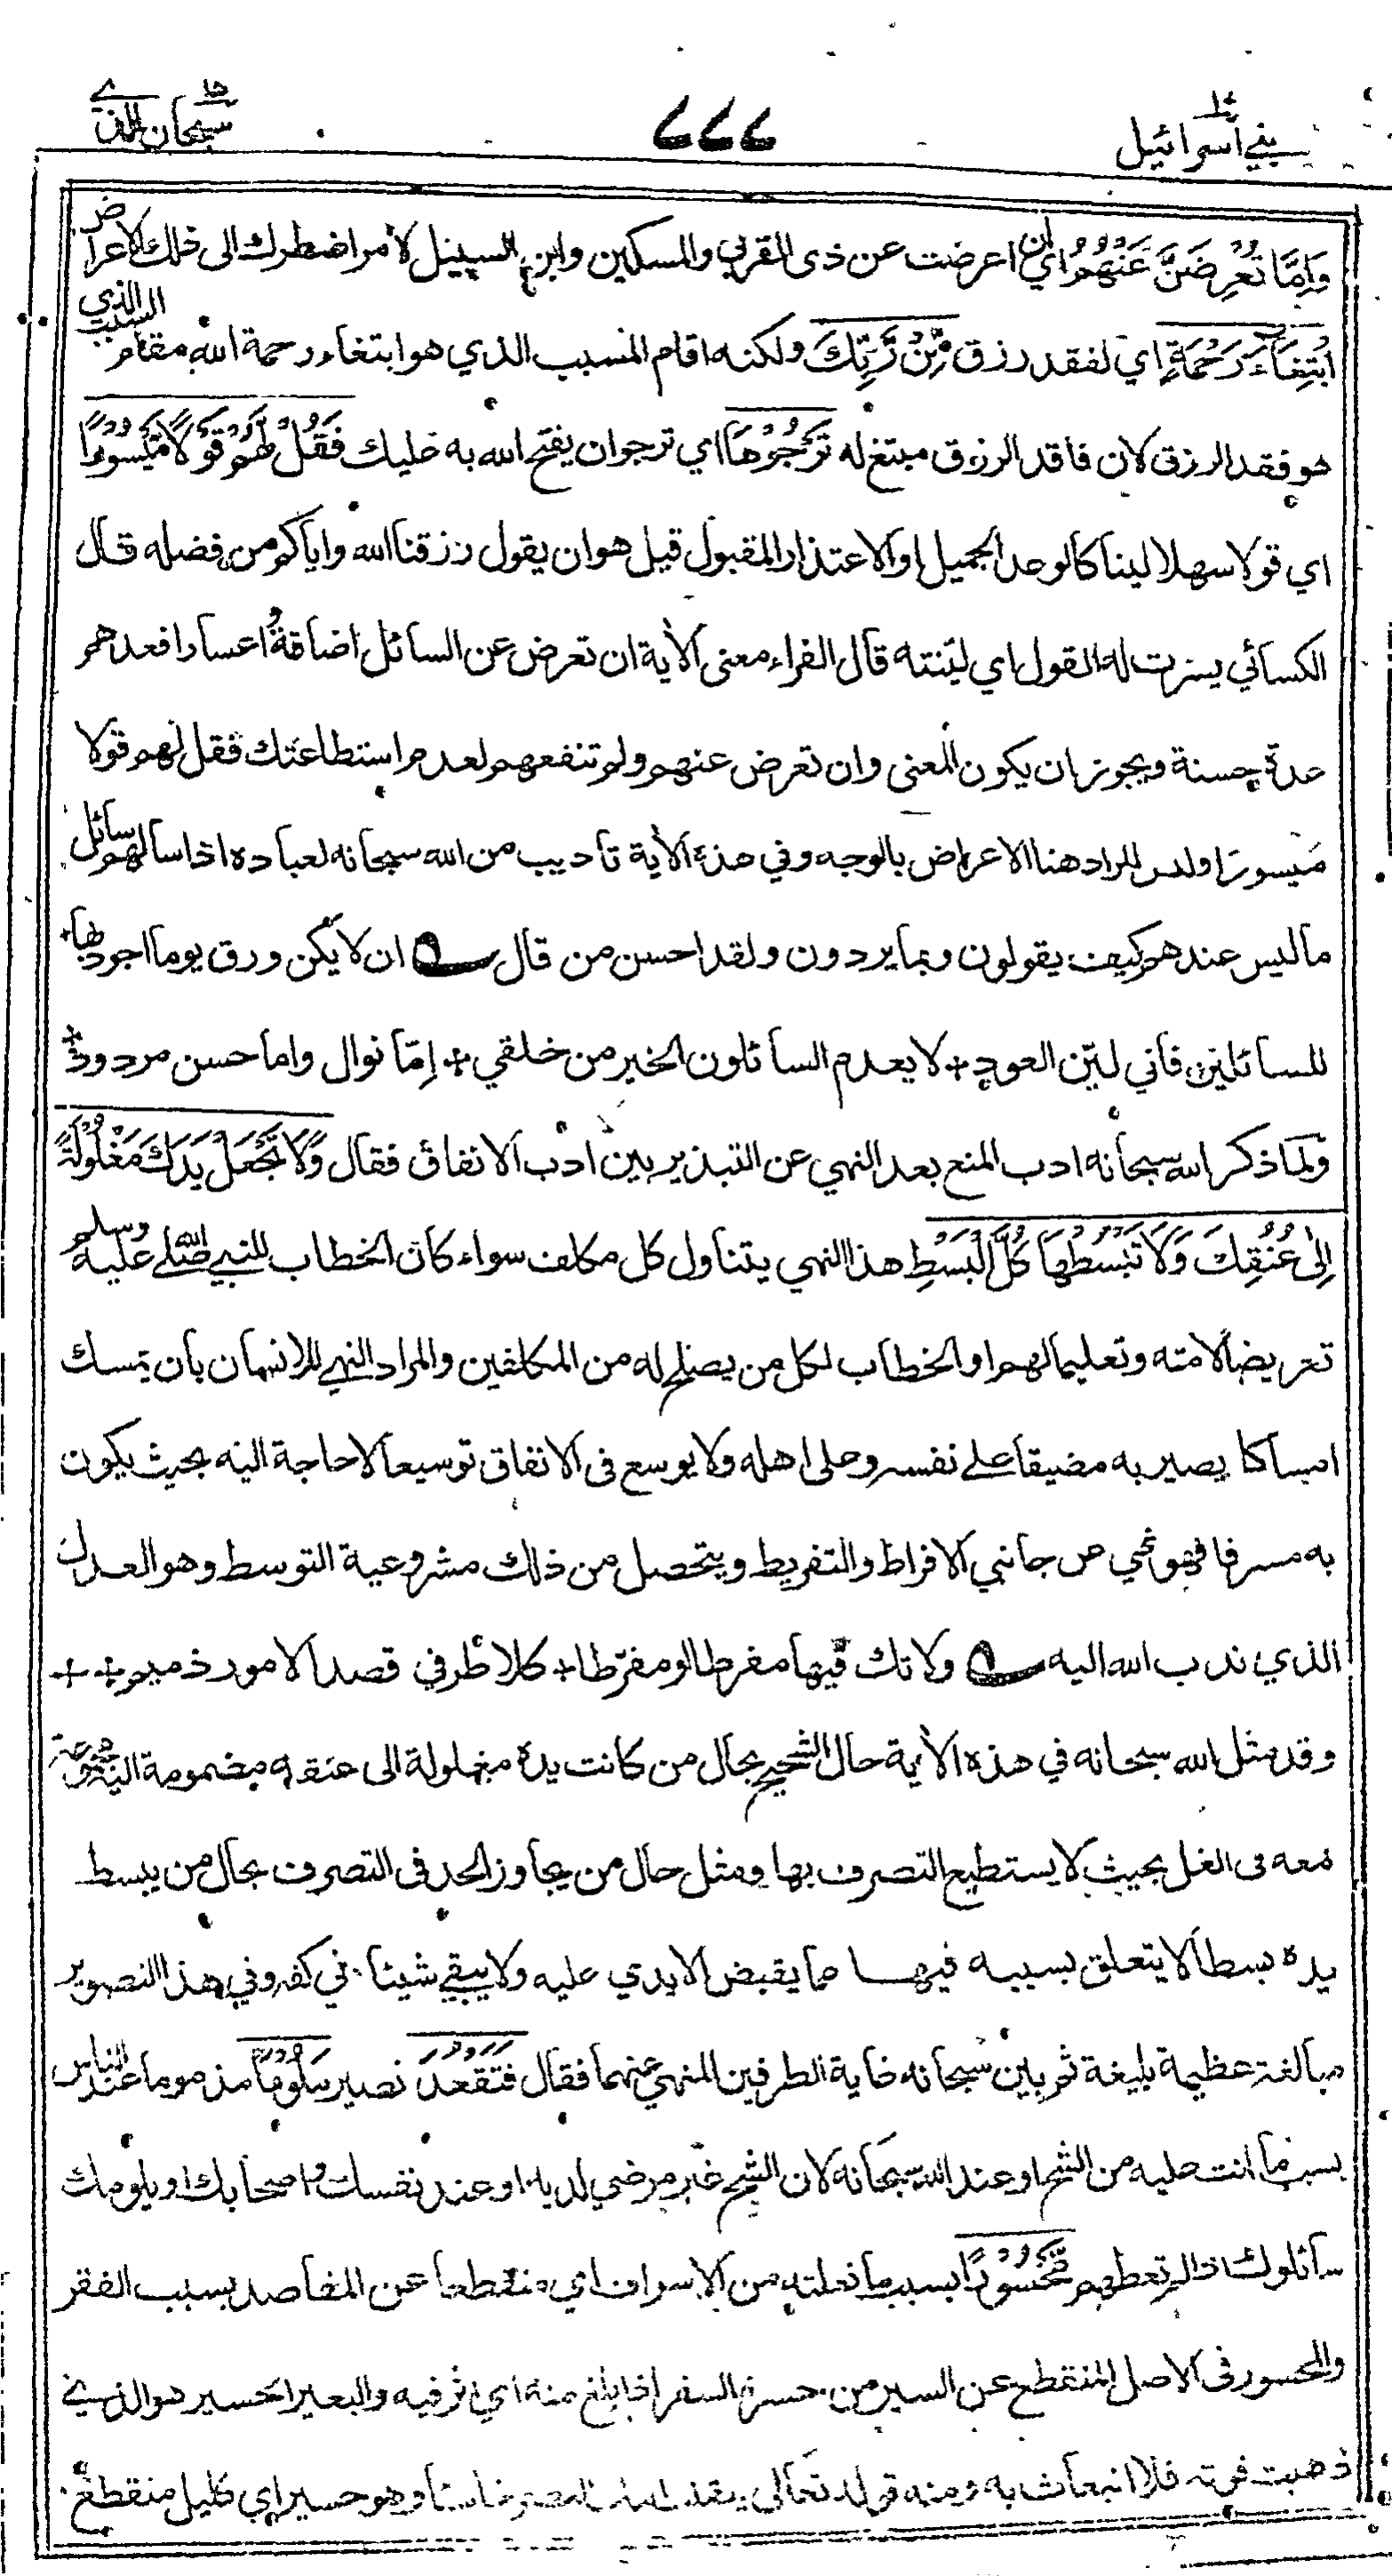 بني اسرائيل
٦٦٦
سبحان الذي
وَاِمَّا تُعْرِضَنَّ عَنْهُمُ اي ان اعرضت عن ذى القربي والمسكين وابن السبيل لأمر اضطرك الى ذلك الاعراض
ابْتِغَاءَ رَحْمَةٍ اي لفقد رزق مِّنْ رَّبِّكَ ولكنه اقام المسبب الذي هو ابتغاء رحمة الله مقام السبب الذي
هو فقد الرزق لان فاقد الرزق مبتغ له تَرْجُوْهَا اي ترجوان يفتح الله به عليك فَقُلْ لَّهُمْ قَوْلًا مَّيْسُوْرًا
اي قولا سهلا لينا كالوعد الجميل او الاعتذار المقبول قيل هو ان يقول رزقنا الله واياكم من فضله قال
الكسائي يسرت له القول اي لينته قال الفراء معنى الآية ان تعرض عن السائل اضاقة واعسارا فعدهم
عدة حسنة ويجوز ان يكون المعنى وان تعرض عنهم ولم تنفعهم لعدم استطاعتك فقل لهم قولا
ميسورا وليس المراد هنا الاعراض بالوجه وفي هذه الآية تأديب من الله سبحانه لعباده اذا سألهم سائل
ما ليس عندهم كيف يقولون وبما يردون ولقد احسن من قال ان لا يكن ورق يوما اجود بها +
للسائلين فاني لين العود + لا يعدم السائلون الخير من خلقي + اِمّا نوال واما حسن مردود +
ولما ذكر الله سبحانه ادب المنع بعد النهي عن التبذير بين ادب الانفاق فقال وَلَا تَجْعَلْ يَدَكَ مَغْلُوْلَةً
اِلٰى عُنُقِكَ وَلَا تَبْسُطْهَا كُلَّ الْبَسْطِ هذا النهي يتناول كل مكلف سواء كان الخطاب للنبي صلى الله عليه وسلم
تعريضا لامته وتعليما لهم او الخطاب لكل من يصلح له من المكلفين والمراد النهي للانسان بأن يمسك
امساكا يصير به مضيقا على نفسه وعلى اهله ولا يوسع في الانفاق توسيعا لا حاجة اليه بحيث يكون
به مسرفا فهو نهي عن جانبي الافراط والتفريط ويتحصل من ذلك مشروعية التوسط وهو العدل
الذي ندب الله اليه ولا تك فيها مفرطا او مفرّطا + كلا طرفي قصد الامور ذميم + +
وقد مثل الله سبحانه في هذه الآية حال الشحيح بحال من كانت يده مغلولة الى عنقه مضمومة اليه مجموعة
معه في الغل بحيث لا يستطيع التصرف بها ومثل حال من يجاوز الحد في التصرف بحال من يبسط
يده بسطا لا يتعلق بسببه فيها مما يقبض الايدي عليه ولا يبقي شيئا في كفه وفي هذا التصوير
مبالغة عظيمة بليغة ثم بين سبحانه غاية الطرفين المنهي عنهما فقال فَتَقْعُدَ تصير مَلُوْمًا مذموما عند الناس
بسبب ما انت عليه من الشح او عند الله سبحانه لان الشح غير مرضي لديه او عند نفسك واصحابك او يلومك
سائلوك اذا لم تعطهم مَّحْسُوْرًا بسبب ما فعلته من الاسراف اي منقطعا عن المقاصد بسبب الفقر
والمحسور في الاصل المنقطع عن السير من حسره السفر اذا بلغ منه اي اثر فيه والبعير الحسير هو الذي
ذهبت قوته فلا انبعاث به ومنه قوله تعالى ينقلب اليك البصر خاسئا وهو حسير اي كليل منقطع